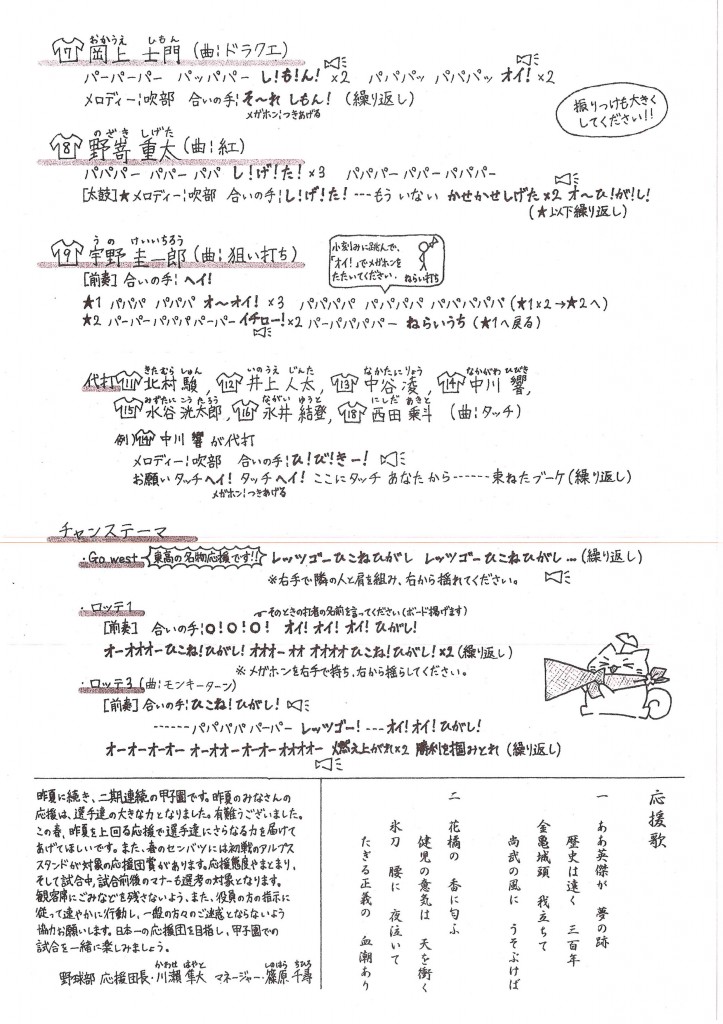 おかうえ しもん
17 岡上 士門 (曲:ドラクエ)
パーパーパー パッパパー し!も!ん!×2 パパパッ パパパッ オイ!×2
メロディー:吹部 合いの手:そ〜れ しもん! (繰り返し)
メガホン:つきあげる
振りつけも大きく
してください!!
のざき しげた
18 野嵜 重太 (曲:紅)
パパパー パパー パパ し!げ!た!×3 パパパー パパー パパパー
[太鼓]★メロディー:吹部 合いの手:し!げ!た! ---もう いない かせかせしげた×2 オ〜ひ!が!し!
(★以下繰り返し)
うの けいいちろう
19 宇野 圭一郎 (曲:狙い打ち)
小刻みに跳んで、
「オイ!」でメガホンを
たたいてください。 ねらい打ち
[前奏] 合いの手:ヘイ!
★1 パパパ パパパ オ〜オイ!×3 パパパパパ パパパパパ パパパパパパ (★1×2→★2へ)
★2 パーパーパパパパーパー イチロー!×2 パーパパパパー ねらいうち (★1へ戻る)
きたむら しゅん いのうえ じんた なかたに りょう なかがわ ひびき
代打 11 北村 駿, 12 井上 人太, 13 中谷 凌, 14 中川 響,
みずたに こうたろう ながい ゆうと にしだ あきと
15 水谷 洸太郎, 16 永井 結登, 18 西田 乗斗 (曲:タッチ)
例) 14 中川 響 が代打
メロディー:吹部 合いの手:ひ!び!きー!
お願い タッチヘイ! タッチヘイ! ここにタッチ あなた から------束ねたブーケ(繰り返し)
メガホン:つきあげる
チャンステーマ
・Go west 東高の名物応援です!! レッツゴーひこねひがし レッツゴーひこねひがし… (繰り返し)
※右手で隣の人と肩を組み、右から揺れてください。
・ロッテ1 そのときの打者の名前を言ってください(ボード掲げます)
[前奏] 合いの手:○!○!○! オイ!オイ!オイ!ひがし!
オーオオオーひこね!ひがし! オオオーオオ オオオオひこね!ひがし!×2(繰り返し)
※メガホンを右手で持ち、右から揺らしてください。
・ロッテ3 (曲:モンキーターン)
[前奏] 合いの手:ひこね!ひがし!
------パパパパパーパー レッツゴー! ---オイ!オイ!ひがし!
オーオーオーオー オーオオーオーオーオオオオー 燃え上がれ×2 勝利を掴みとれ (繰り返し)
昨夏に続き、二期連続の甲子園です。昨夏のみなさんの
応援は、選手達の大きな力となりました。有難うございました。
この春、昨夏を上回る応援で選手達にさらなる力を届けて
あげてほしいです。また、春のセンバツには初戦のアルプス
スタンドが対象の応援団賞があります。応援態度やまとまり、
そして試合中、試合前後のマナーも選考の対象となります。
観客席にごみなどを残さないよう、また、役員の方の指示に
従って速やかに行動し、一般の方々のご迷惑とならないよう
協力お願いします。日本一の応援団を目指し、甲子園での
試合を一緒に楽しみましょう。
かわせ はやと しのはら ちひろ
野球部 応援団長・川瀬 隼大 マネージャー・篠原 千尋
応援歌
一 ああ英傑が 夢の跡
歴史は遠く 三百年
金亀城頭 我立ちて
尚武の風に うそぶけば
二 花橘の 香に匂ふ
健児の意気は 天を衝く
氷刀 腰に 夜泣いて
たぎる正義の 血潮あり